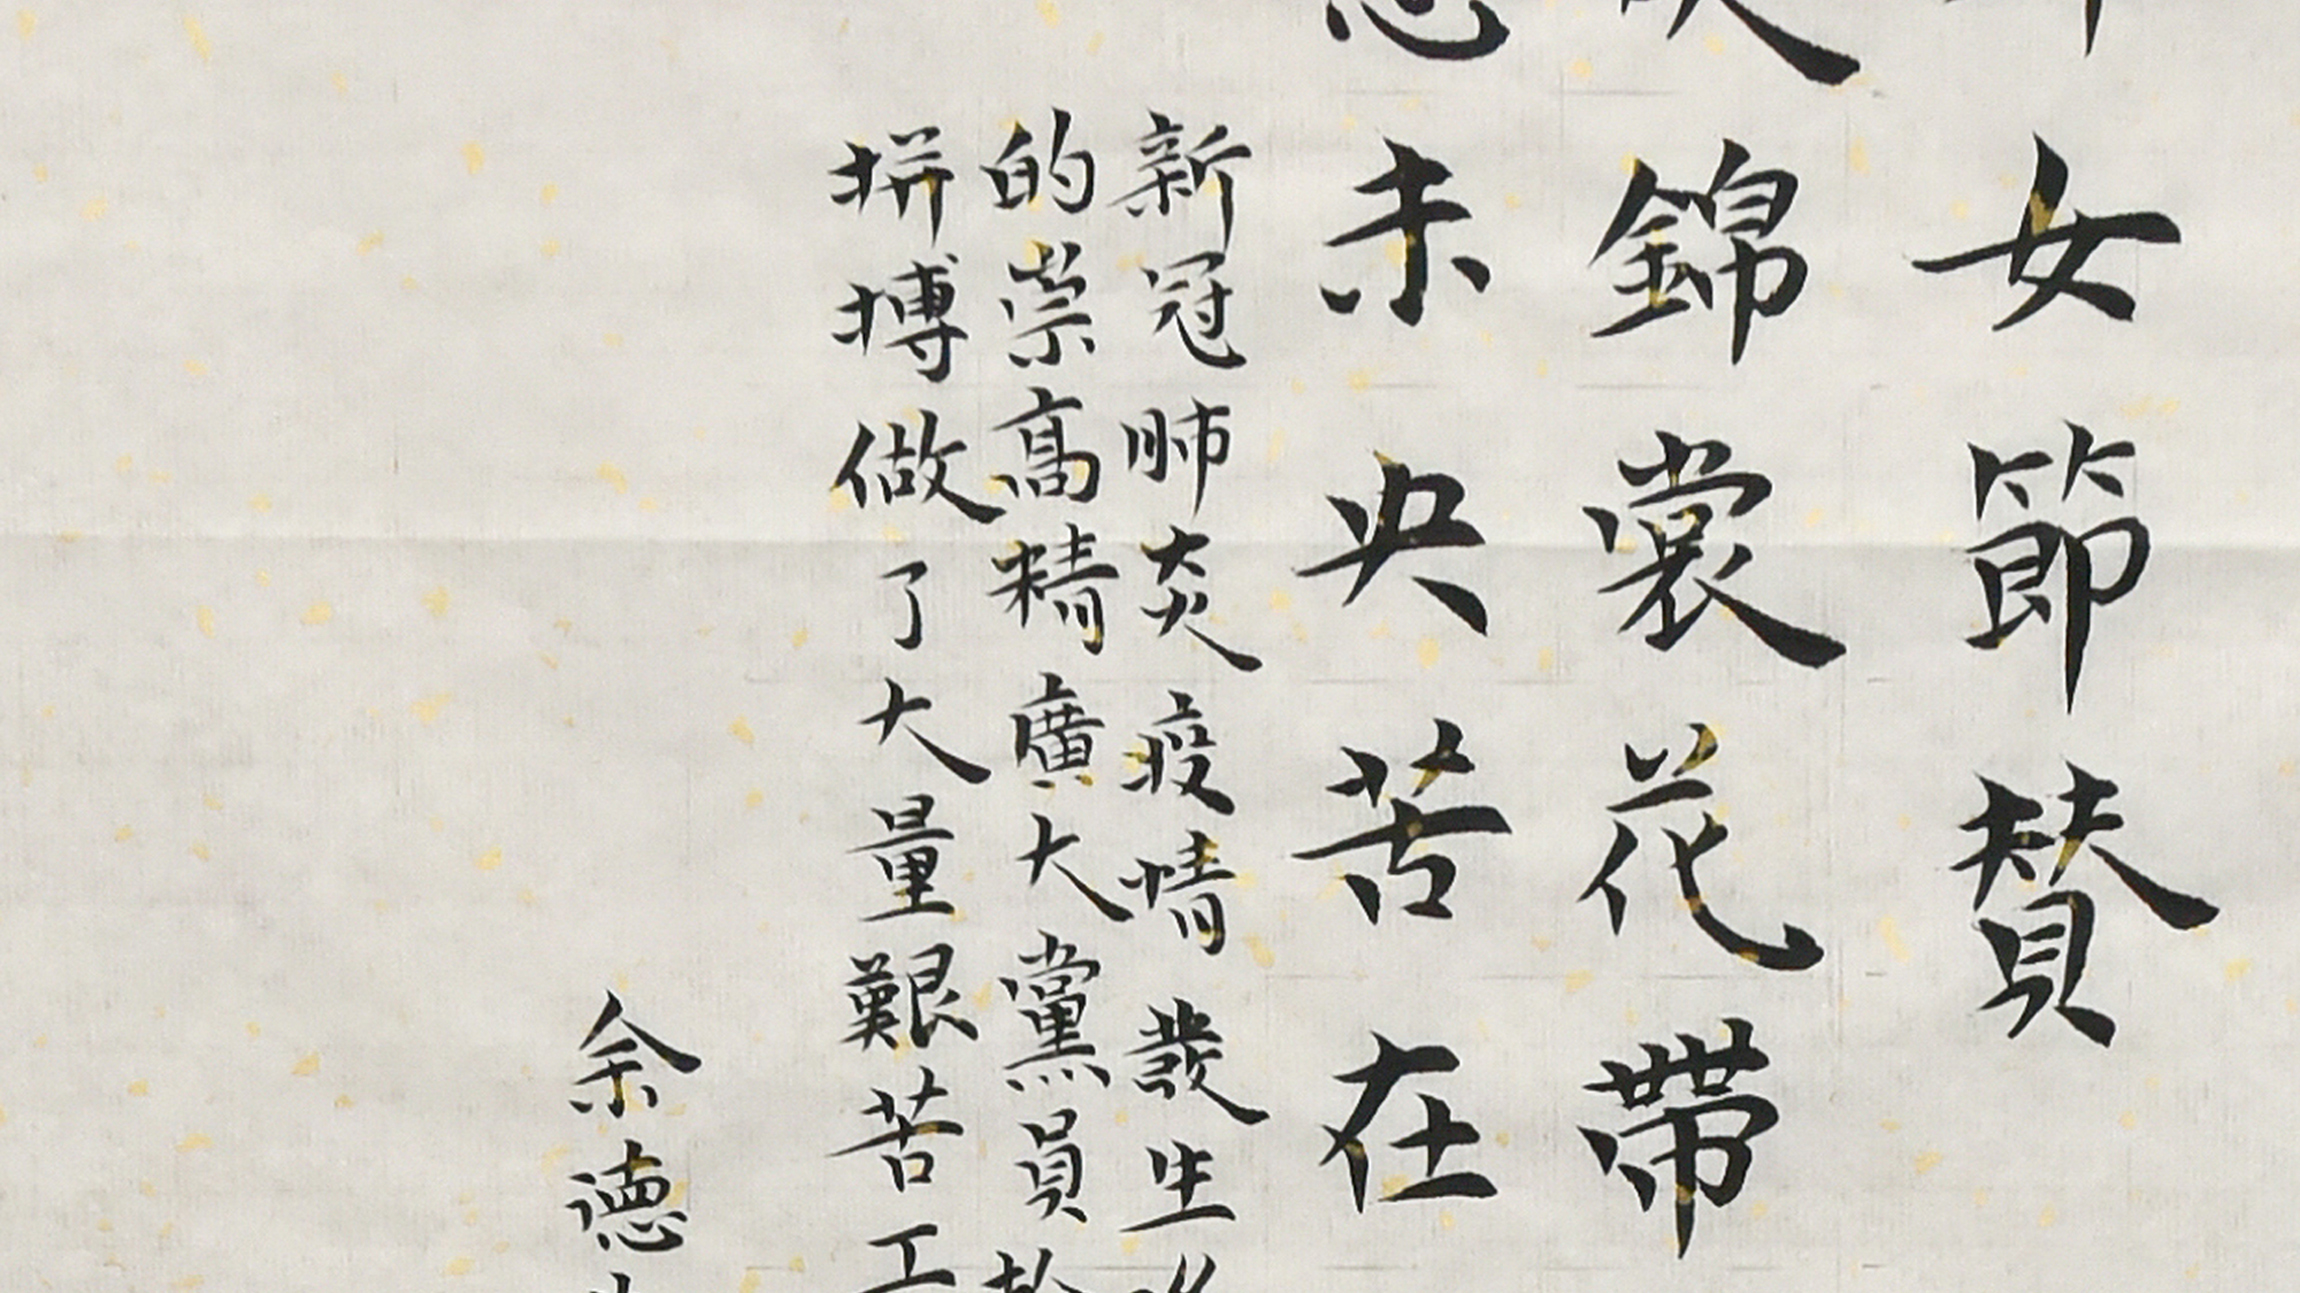 女節賛
錦裳花帶
未央苦在
新冠肺炎疫情發生
的崇高精廣大黨員
拼搏做了大量艱苦工
余德